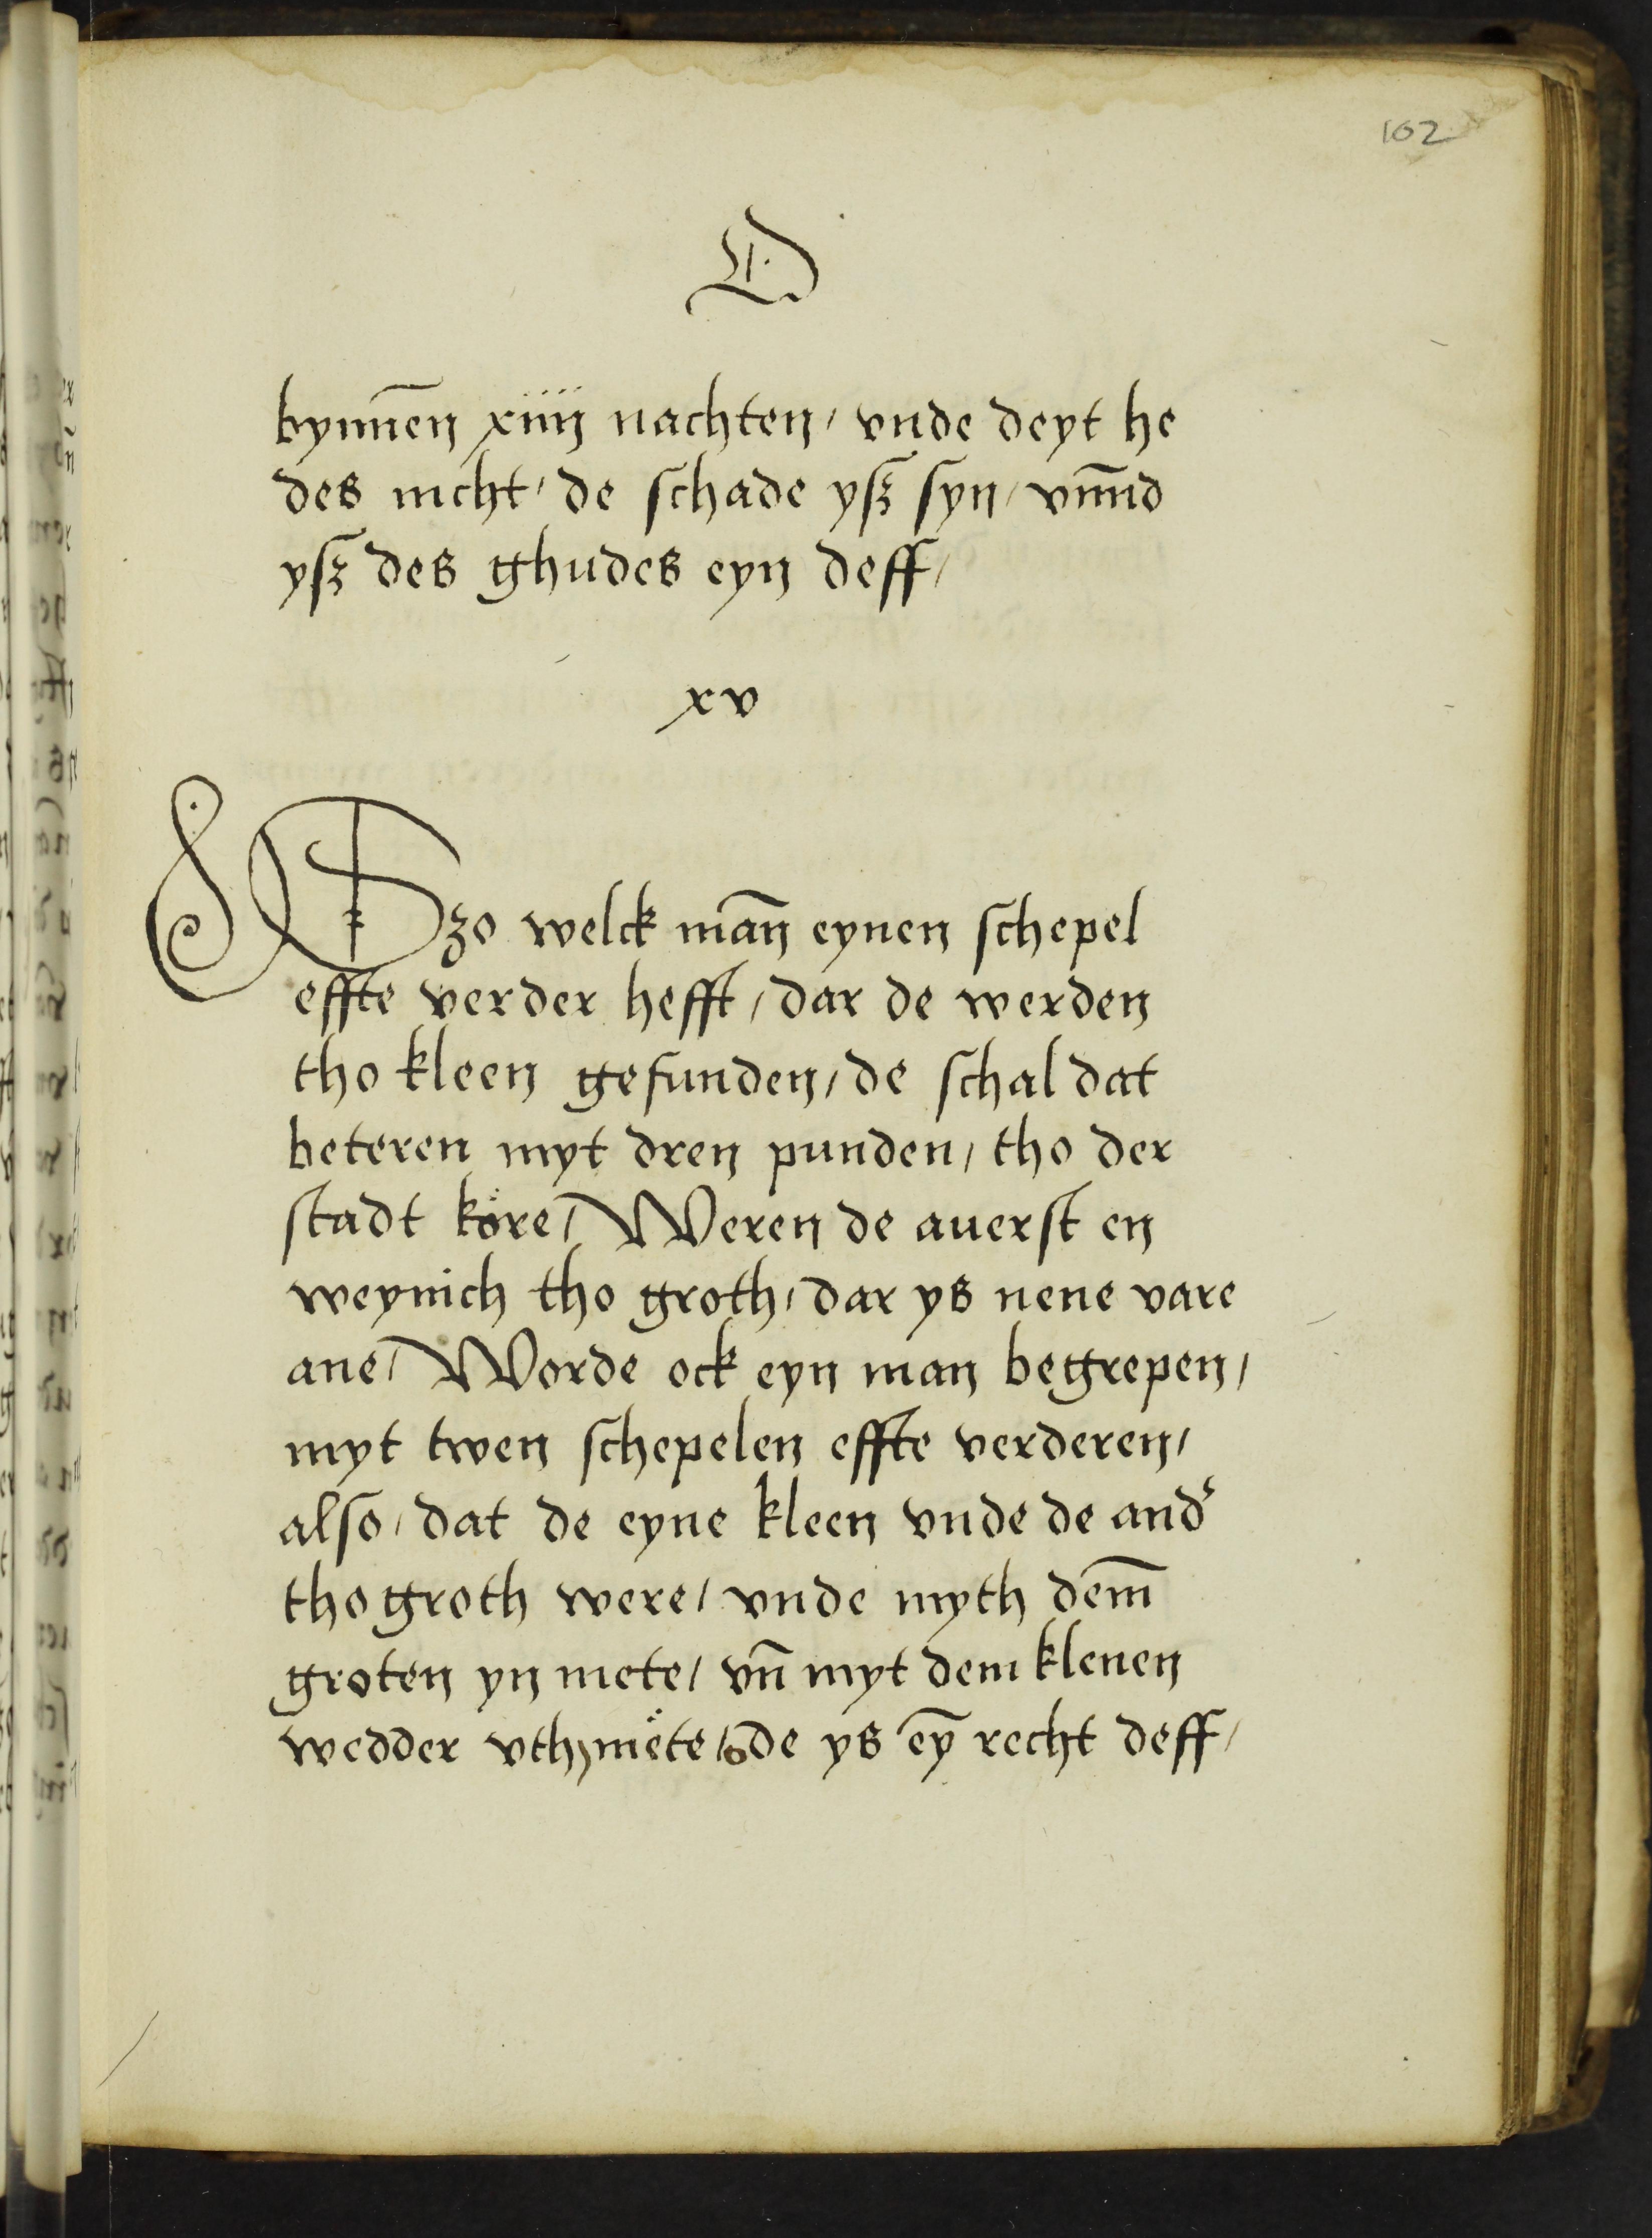 102
D
bynnē xiiij nachten / vnde deyt he
des nicht / de schade ysz syn / vnnd
ysz des ghudes eyn deff /
xv
Szo welck mañ eynen schepel
effte verder hefft / dar de werden
tho kleen gefunden / de schal dat
beteren myt dren punden / tho der
stadt köre / Weren de auerst en
weynich tho groth / dar ys nene vare
ane / Worde ock eyn man begrepen /
myt twen schepelen effte verderen /
also / dat de eyne kleen vnde de and'
tho groth were / vnde myth dem̄
groten yn mete / vn̄ myt dem klenen
wedder vth mëte / de ys eȳ recht deff /